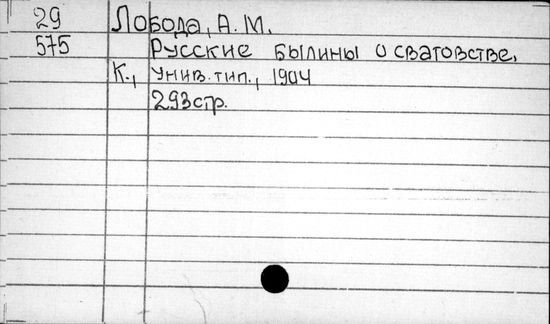 29 Лобода, А.М.
575 Русские былины о сватовстве.
К., Унив. тип., 1904
293 стр.